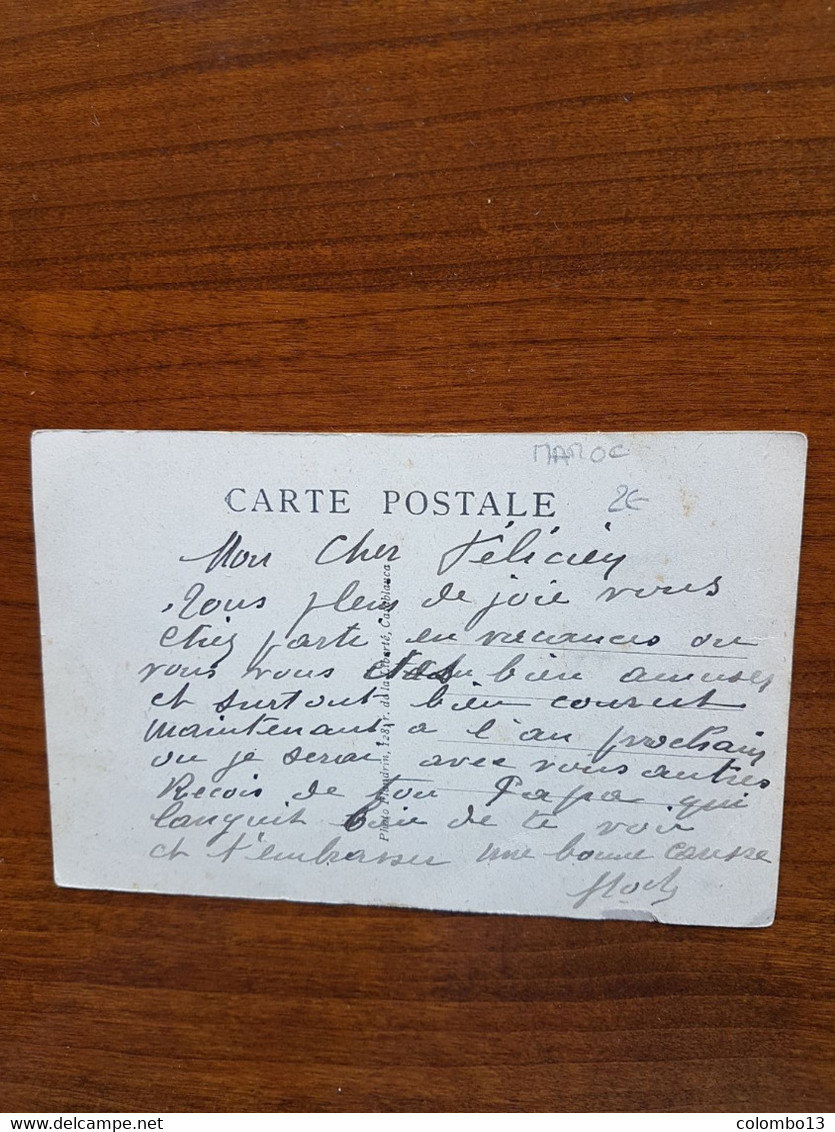 MAROC
CARTE POSTALE 2€
Mon Cher Félicien
plein de joie vous
parti en vacances ou
vous vous bien amuser
et surtout bien
maintenant a l'an prochain
ou je serai avec vous autres
Recois de ton Papa qui
languit de te voir
et t'embrasser une bonne
Photo Flandrin, 128, r. de la Liberté, Casablanca
delcampe.net
colombo13